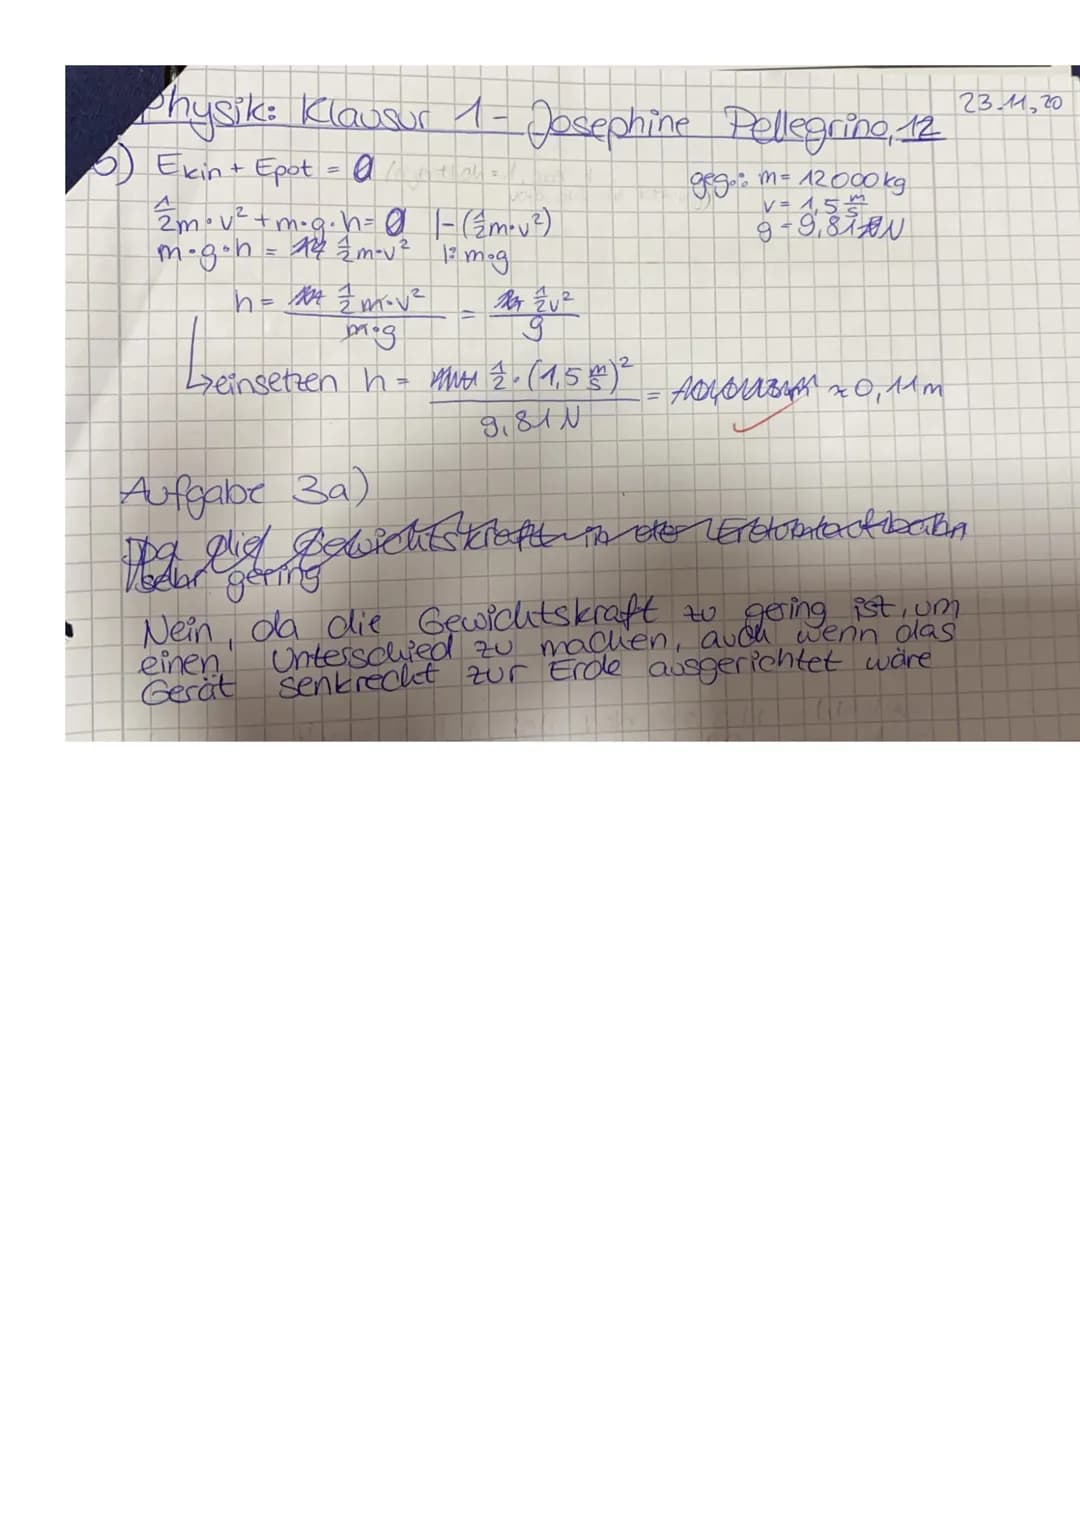 Physik: Klausur 1 - Josephine Pellegrino, 12
23.11.20
5) Ekin + Epot = 0
geg.: m = 12000 kg
v = 1,5 m/s
g = 9,81 N
1/2 m · v² + m · g · h = 0 |-(1/2 m · v²)
m · g · h = 1/2 m · v² |: m · g
h = 1/2 m · v² / m · g = 1/2 v² / g
↳ einsetzen h = 1/2 · (1,5 m/s)² / 9,81 N = ≈ 0,11 m
Aufgabe 3a)
Da die Gewichtskraft in der Erdumlaufbahn
sehr gering
Nein, da die Gewichtskraft zu gering ist, um
einen Unterschied zu machen, auch wenn das
Gerät senkrecht zur Erde ausgerichtet wäre